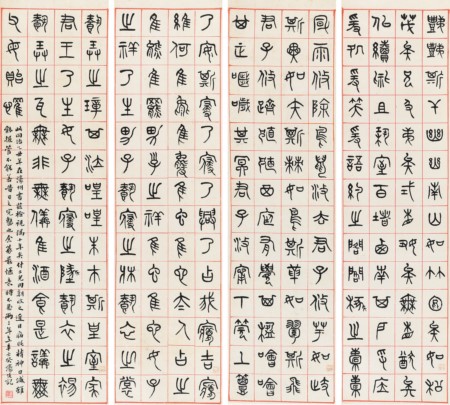 秩秩斯干幽幽南山如竹苞矣如松
茂矣兄及弟矣式相好矣無相猶矣
似續妣祖築室百堵西南其戶爰居
爰處爰笑爰語約之閣閣椓之橐橐
風雨攸除鳥鼠攸去君子攸芋如跂
斯翼如矢斯棘如鳥斯革如翬斯飛
君子攸躋殖殖其庭有覺其楹噲噲
其正噦噦其冥君子攸寧下莞上簟
乃安斯寢乃寢乃興乃占我夢吉夢
維何維熊維羆維虺維蛇大人占之
維熊維羆男子之祥維虺維蛇女子
之祥乃生男子載寢之牀載衣之裳
載弄之璋其泣喤喤朱芾斯皇室家
君王乃生女子載寢之地載衣之裼
載弄之瓦無非無儀唯酒食是議無
父母貽罹